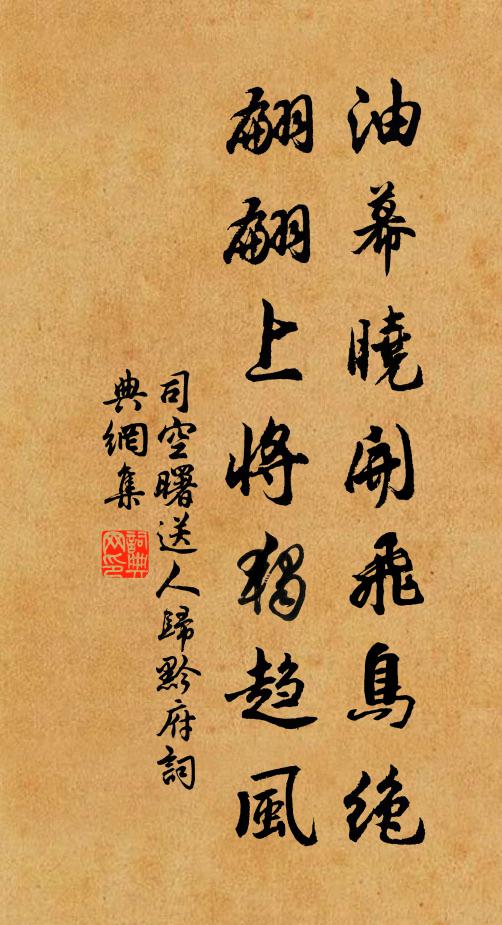 油幕曉開飛鳥絕
翩翩上將獨趨風
司空曙送人歸黔府詞
典網集
詞典網印